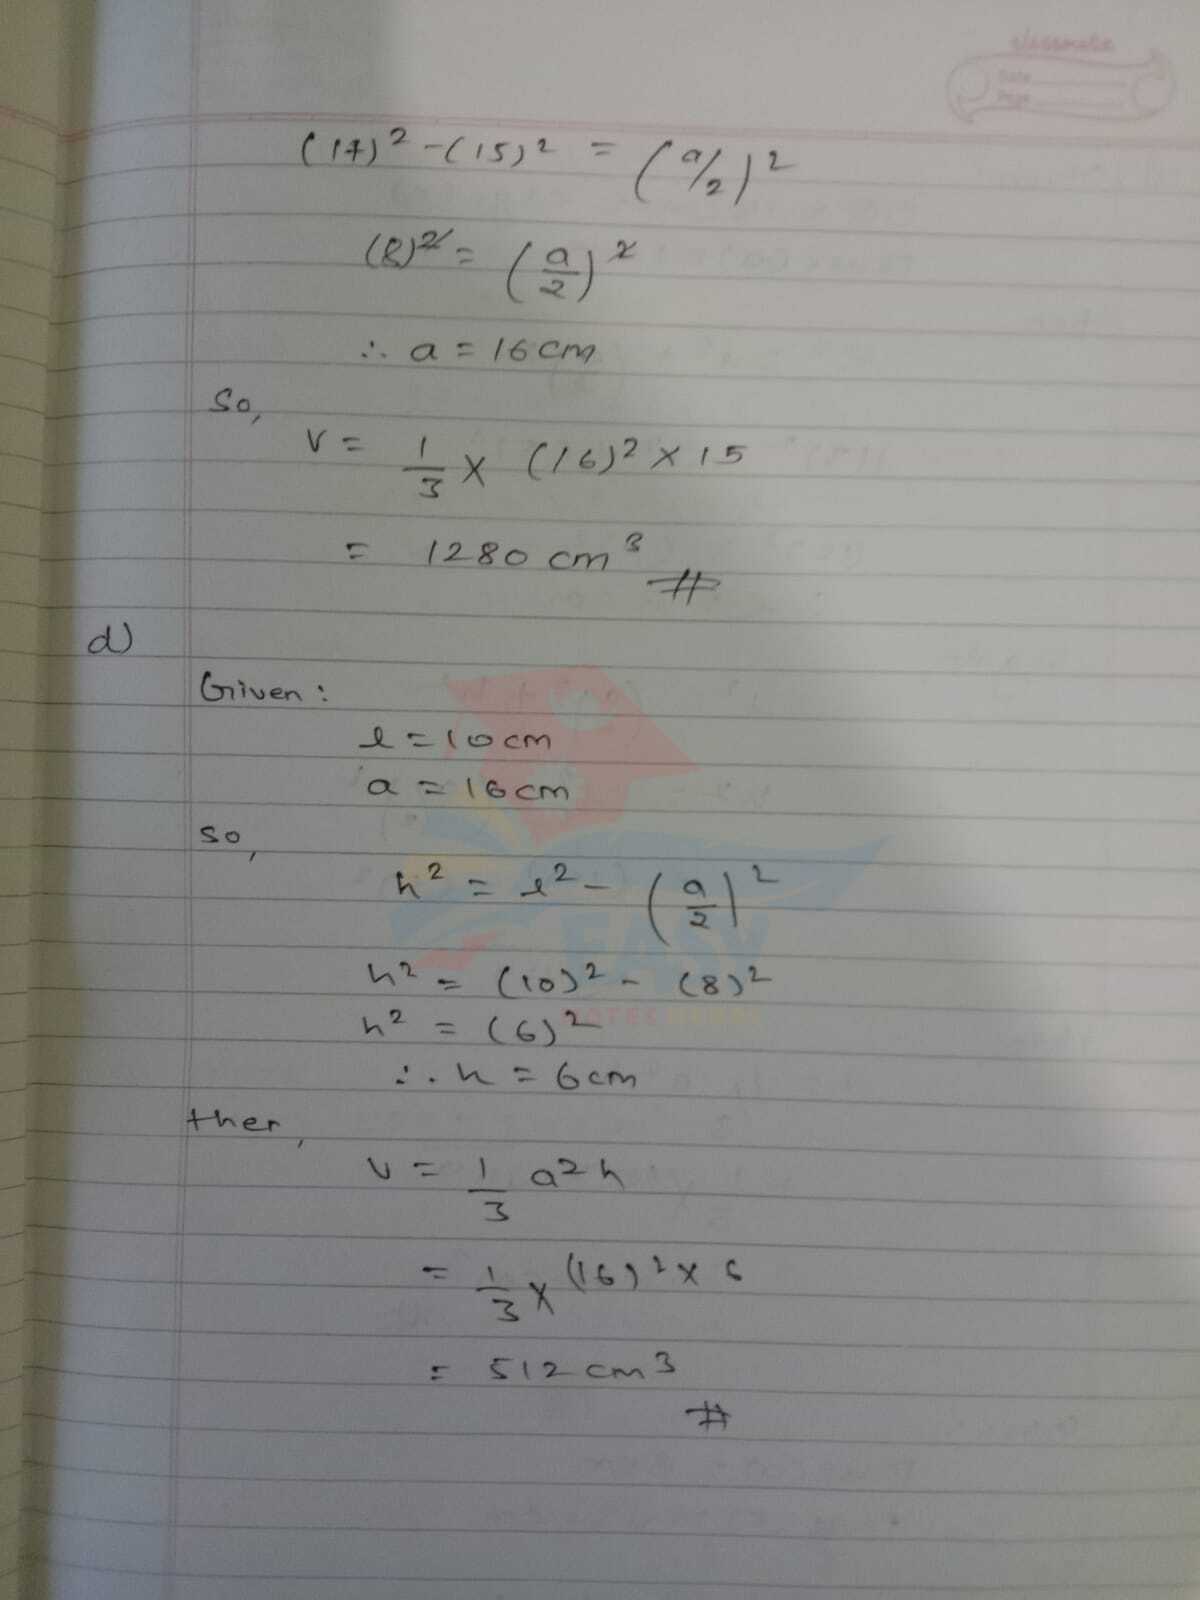 classmate
Date
Page
(17)² - (15)² = (a/2)²
(8)² = (a/2)²
∴ a = 16 cm
So,
V = 1/3 × (16)² × 15
= 1280 cm³ #
d)
Given:
l = 10 cm
a = 16 cm
so,
h² = l² - (a/2)²
h² = (10)² - (8)²
h² = (6)²
∴ h = 6 cm
then,
V = 1/3 a²h
= 1/3 × (16)² × 6
= 512 cm³
#
EASY
NOTES